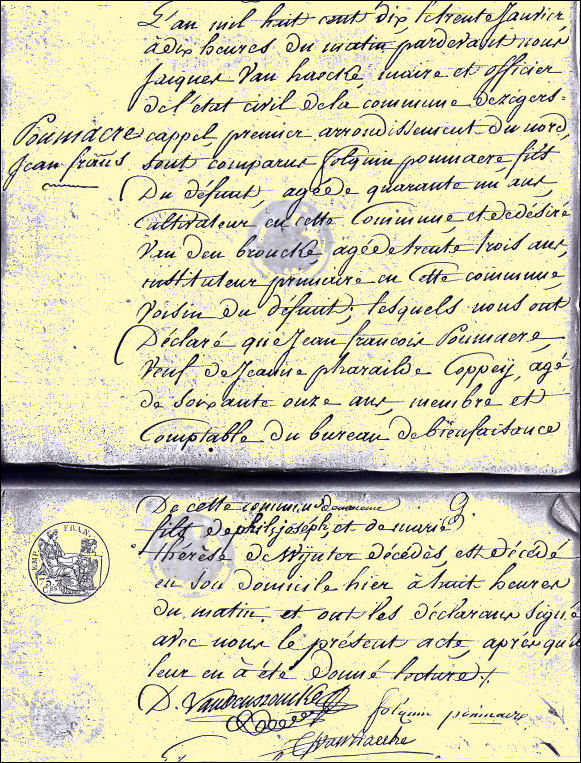 L'an mil huit cent dix, le trente Janvier
à dix heures du matin pardevant nous
Jacques Van haecke, maire et officier
de l'état civil de la commune de zegers-
Poumaere
Jean frans
cappel, premier arrondissement du nord,
sont comparus folquin poumaere fils
Du défunt, agé de quarante un ans,
Cultivateur en cette Commune, et de désiré
Van den broucke, agé de trente trois ans,
instituteur primaire en cette commune,
Voisin du défunt; lesquels nous ont
Déclaré que Jean francois Poumaere,
Veuf de Jeanne pharailde Coppeij, agé
de soixante onze ans, membre et
Comptable du bureau de bienfaisance
De cette commune
fils de phili joseph, et de marie
EMP. FRAN.
thérèse de Wynter décédés, est décédé
en son domicile hier à huit heures
du matin. et ont les déclarans signé
avec nous le présent acte, après qu'il
leur en à été donné lecture ./.
D. Vandenbroucke
folquin poumaere
J Van haecke